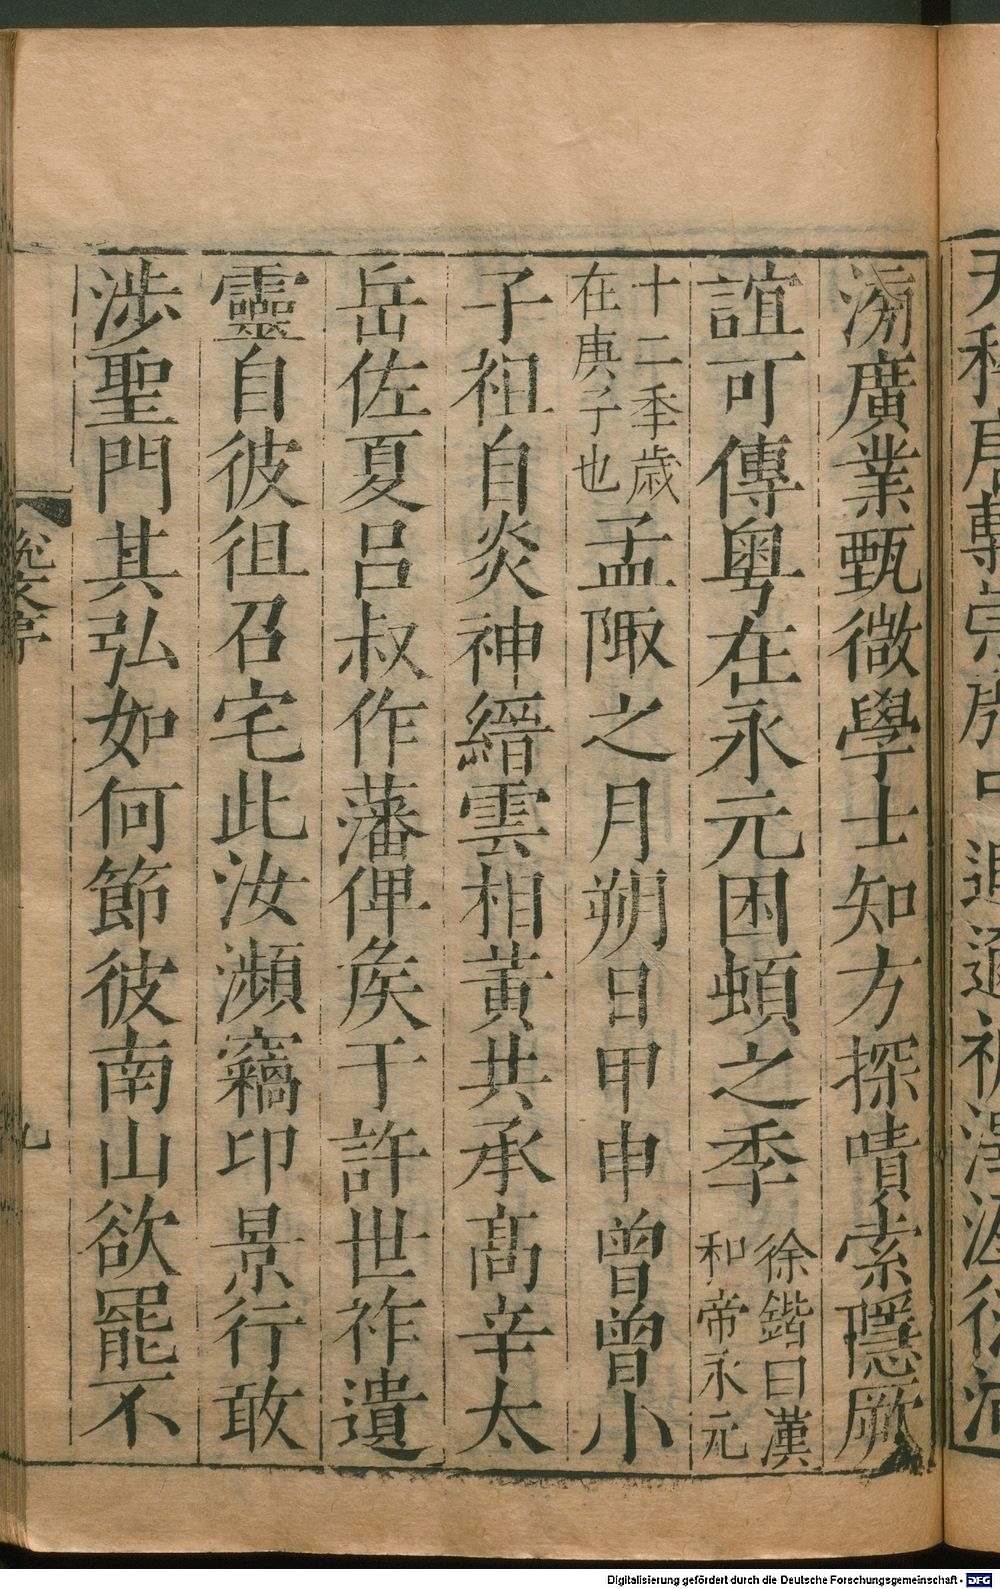 滂廣業甄微學士知方探嘖索隱厥
誼可傳粵在永元困頓之季徐鍇曰漢
和帝永元
十二季歳
在庚子也
孟陬之月朔日甲申曾曾小
子祖自炎神縉雲相黃共承髙辛太
岳佐夏呂叔作藩俾矦于許世祚遺
靈自彼徂召宅此汝瀕竊印景行敢
涉聖門其弘如何節彼南山欲罷不
說文序
九
Digitalisierung gefördert durch die Deutsche Forschungsgemeinschaft - DFG